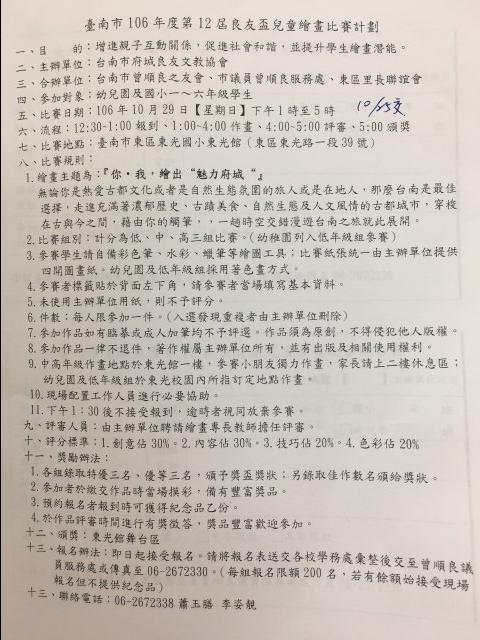 臺南市 106 年度第 12 屆良友盃兒童繪畫比賽計劃
一、目　　的：增進親子互動關係，促進社會和諧，並提升學生繪畫潛能。
二、主辦單位：台南市府城良友文教協會
三、合辦單位：台南市曾順良之友會、市議員曾順良服務處、東區里長聯誼會
四、參加對象：幼兒園及國小一～六年級學生
五、比賽日期：106 年 10 月 29 日【星期日】下午 1 時至 5 時
10/25交
六、流程：12:30-1:00 報到、1:00-4:00 作畫、4:00-5:00 評審、5:00 頒獎
七、比賽地點：臺南市東區東光國小東光館（東區東光路一段 39 號）
八、比賽規則：
1.繪畫主題為：『你‧我，繪出“魅力府城“』
無論你是熱愛古都文化或者是自然生態氛圍的旅人或是在地人，那麼台南是最佳
選擇，走進充滿著濃郁歷史、古蹟美食、自然生態及人文風情的古都城市，穿梭
在古與今之間，藉由你的觸筆，，一趟時空交錯漫遊台南之旅就此展開。
2.比賽組別：計分為低、中、高三組比賽。（幼稚園列入低年級組參賽）
3.參賽學生請自備彩色筆、水彩、蠟筆等繪圖工具；比賽紙張統一由主辦單位提供
四開圖畫紙。幼兒園及低年級組採用著色畫方式。
4.參賽者標籤貼於背面左下角，請參賽者當場填寫基本資料。
5.未使用主辦單位用紙，則不予評分。
6.件數：每人限參加一件。（入選發現重複者由主辦單位刪除）
7.參加作品如有臨摹或成人加筆均不予評選。作品須為原創，不得侵犯他人版權。
8.參加作品一律不退件，著作權屬主辦單位所有，並有出版及相關使用權利。
9.中高年級作畫地點於東光館一樓，參賽小朋友獨力作畫，家長請上二樓休息區；
幼兒園及低年級組於東光校園內所指訂定地點作畫。
10.現場配置工作人員進行必要協助。
11.下午 1：30 後不接受報到，逾時者視同放棄參賽。
九、評審人員：由主辦單位聘請繪畫專長教師擔任評審。
十、評分標準：1.創意佔 30%。2.內容佔 30%。3.技巧佔 20%。4.色彩佔 20%
十一、獎勵辦法：
1.各組錄取特優三名、優等三名，頒予獎盃獎狀；另錄取佳作數名頒給獎狀。
2.參加者於繳交作品時當場摸彩，備有豐富獎品。
3.預約報名者報到時可獲得紀念品乙份。
4.於作品評審時間進行有獎徵答，獎品豐富歡迎參加。
十二、頒獎：東光館舞台區
十三、報名辦法：即日起接受報名。請將報名表送交各校學務處彙整後交至曾順良議
員服務處或傳真至 06-2672330。（每組報名限額 200 名，若有餘額始接受現場
報名但不提供紀念品）
十三、聯絡電話：06-2672338 蕭玉勝 李姿靚